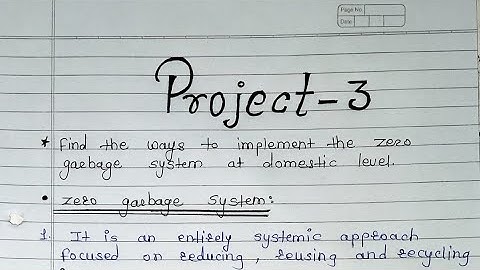 Page No.
Date
Project-3
* Find the ways to implement the zero
garbage system at domestic level.
• zero garbage system:
1. It is an entirely systemic approach
focused on reducing, reusing and recycling